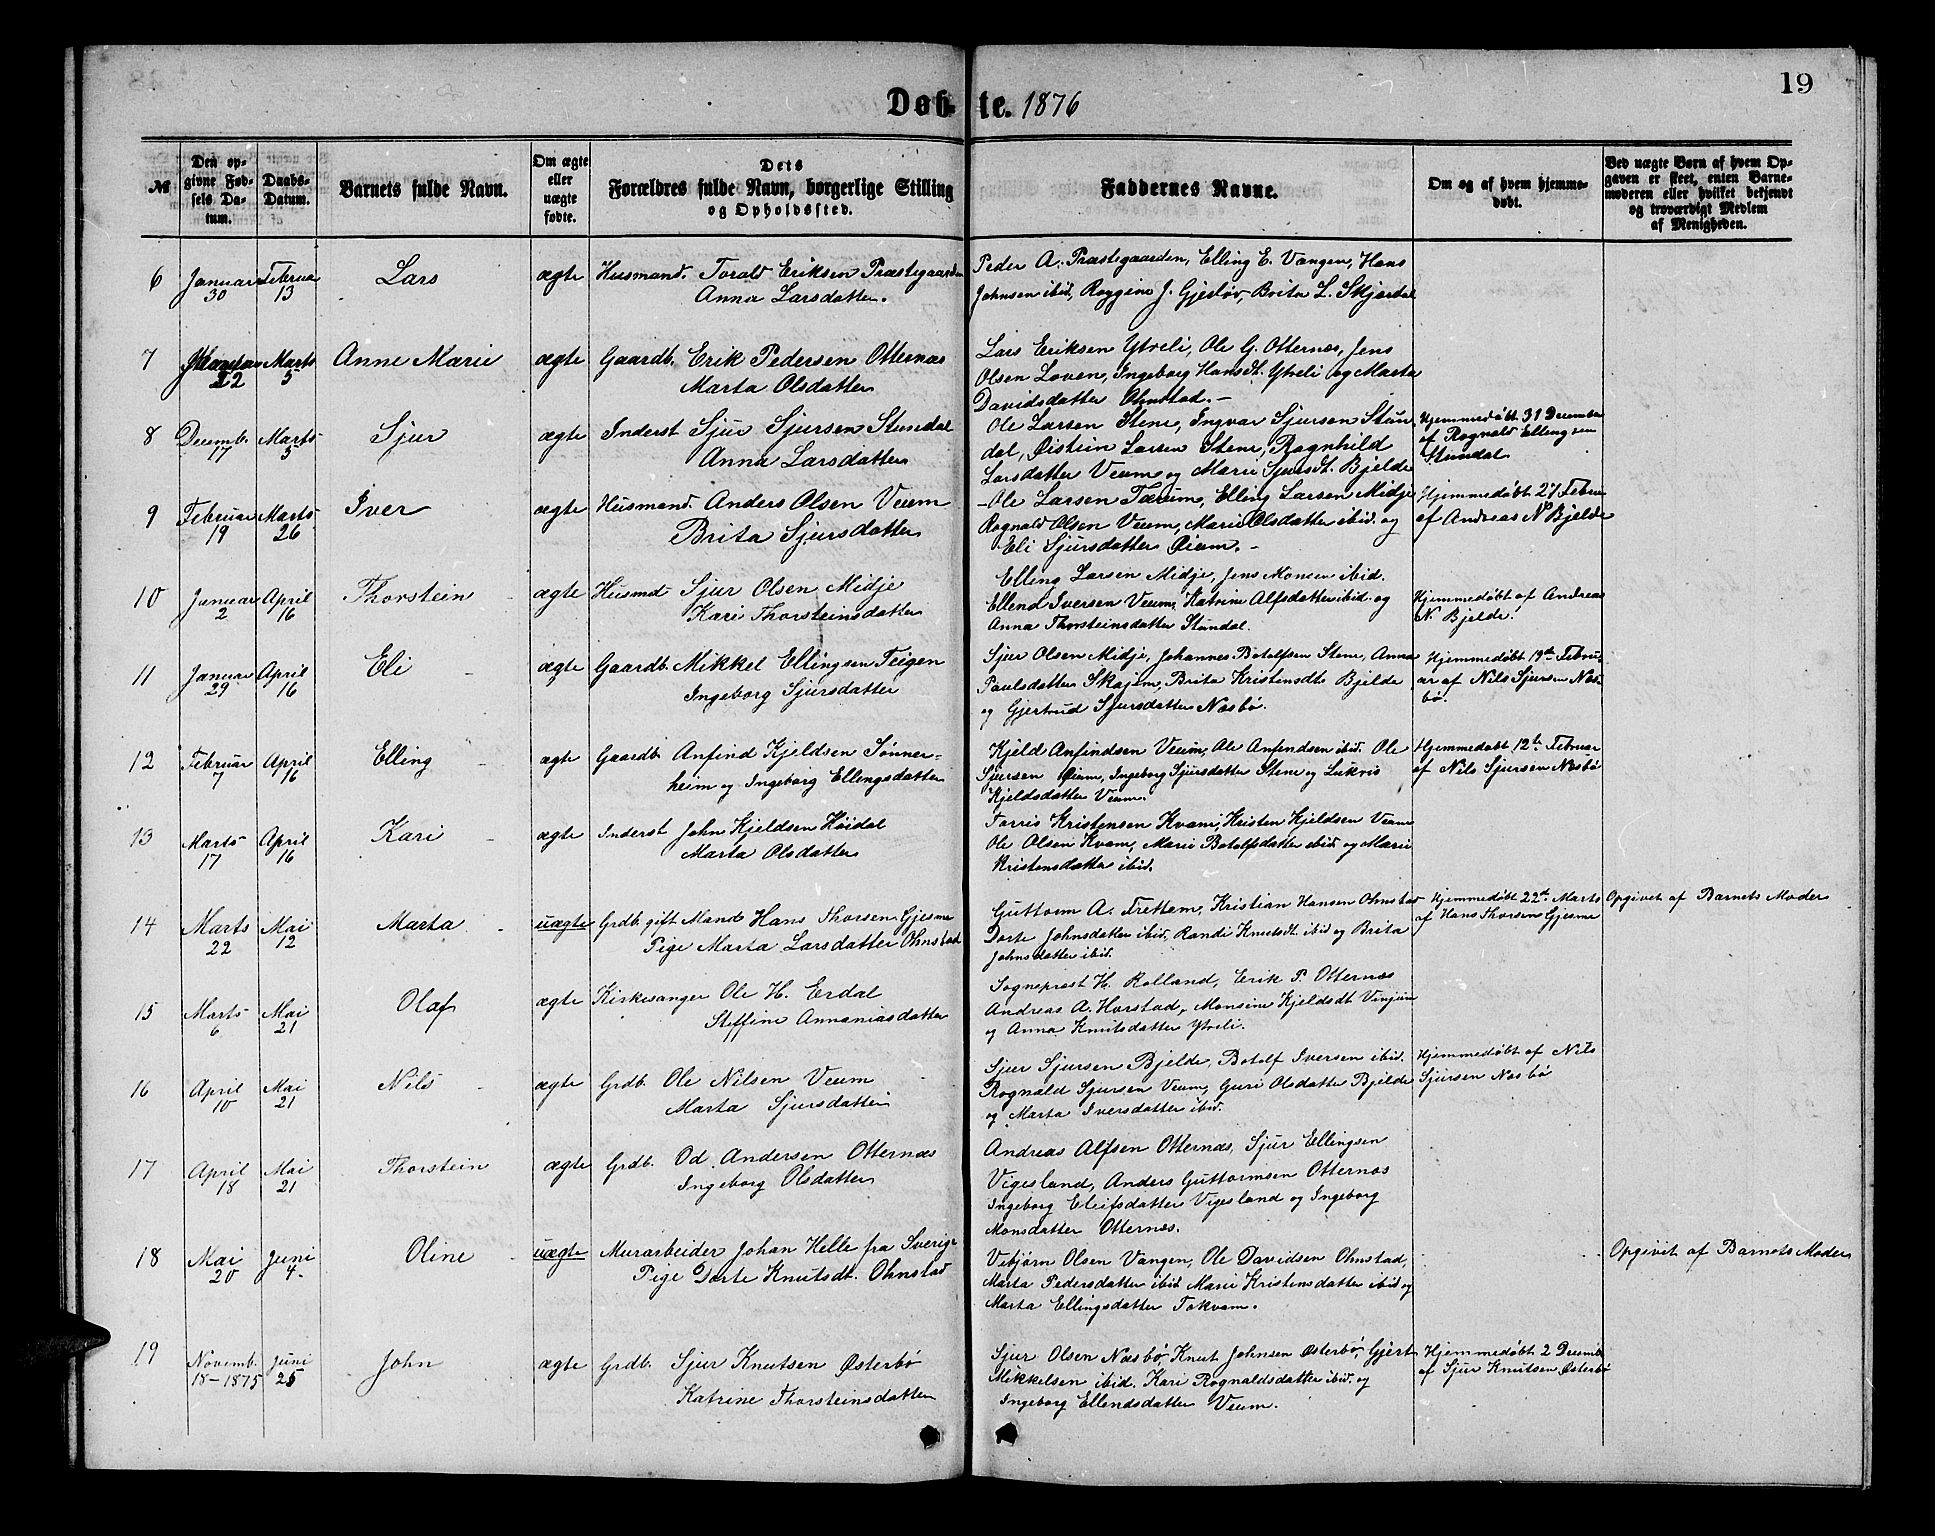 19
Døbte. 1876
№
Den opgivne Fødsels Datum.
Daabs-Datum.
Barnets fulde Navn.
Om ægte eller uægte fødte.
Dets Forældres fulde Navn, borgerlige Stilling og Opholdssted.
Faddernes Navne.
Om og af hvem hjemmedøbt.
Ved uægte Børn af hvem Opgaven er skeet, enten Barnemoderen eller hvilket bekjendt og troværdigt Medlem af Menigheden.
6 Januar 30 Februar 13 Lars ægte Husmand. Torald Eriksen Præstegaarden
Anna Larsdatter.
Peder A. Præstegaarden, Elling E. Vangen, Hans
Johnsen ibid, J. Gjesløv, Brita L. Skjerdal
7 22 Marts 5 Anne Marie ægte Gaardb. Erik Pedersen Otternæs
Marta Olsdatter
Lars Eriksen Ytreli, Ole G. Otternæs, Jens
Olsen Loven, Ingeborg Hansdt. Ytreli og Marta
Davidsdatter Ohnstad.-
8 Decemb. 17 Marts 5 Sjur ægte Inderst Sjur Sjursen Stundal
Anna Larsdatter
Ole Larsen Stene, Ingvar Sjursen Stun
dal, Øistein Larsen Stene, Ragnhild
Larsdatter Veum og Marie Sjursdt. Bjelde
Hjemmedøbt 31 December
af Rognald Ellingsen
Stundal
9 Februar 19 Marts 26 Iver ægte Husmand. Anders Olsen Veum
Brita Sjursdatter
Ole Larsen Tærum, Elling Larsen Midje
Rognald Olsen Veum, Marie Olsdatter ibid. og
Eli Sjursdatter Øium.-
Hjemmedøbt 27 Febru
af Andreas N Bjelde
10 Januar 2 April 16 Thorstein ægte Husmd Sjur Olsen Midje
Kari Thorsteinsdatter
Elling Larsen Midje, Jens Monsen ibid.
Ellend Iversen Veum, Katrine Alfsdatter ibid. og
Anna Thorsteinsdatter Stundal.
Hjemmedøbt af Andreas
N. Bjelde.
11 Januar 29 April 16 Eli ægte Gaardb. Mikkel Ellingsen Teigen
Ingeborg Sjursdatter
Sjur Olsen Midje, Johannes Botolfsen Stene, Anna
Paulsdatter Skajem, Brita Kristensdt. Bjelde
og Gjertrud Sjursdatter Næsbø.
Hjemmedøbt 19de Febru-
ar af Nils Sjursen Næs-
bø.
12 Februar 7 April 16 Elling ægte Gaardb. Anfind Kjeldsen Sønner-
heim og Ingeborg Ellingsdatter
Kjeld Anfindsen Veum, Ole Anfindsen ibid. Ole
Sjursen Øium, Ingeborg Sjursdatter Stene og Lukris
Kjeldsdatter Veum.
Hjemmedøbt 12te Februar
af Nils Sjursen Næsbø
13 Marts 17 April 16 Kari ægte Inderst John Kjeldsen Høidal
Marta Olsdatter
Torris Kristensen Kvam, Kristen Kjeldsen Veum
Ole Olsen Kvam, Marie Botolfsdatter ibid og Marie
Kristensdatter ibid.
14 Marts 22 Mai 12 Marta uægte Grdb. gift Mand Hans Thorsen Gjesme
Pige Marta Larsdatter Ohnstad
Guttorm A. Frettem, Kristian Hansen Ohnstad
Dorte Johnsdatter ibid, Randi Knutsdt. ibid og Brita
Johnsdatter ibid.
Hjemmedøbt 22de Marts
af Hans Thorsen Gjesme
Opgivet af Barnets Moder
15 Marts 6 Mai 21 Olaf ægte Kirkesanger Ole H. Erdal
Steffine Annaniasdatter
Sogneprest H. Rolland, Erik P. Otternæs
Andreas A. Horstad, Monsine Kjeldsdt. Vinjum
og Anna Knutsdatter Ytreli.
16 April 10 Mai 21 Nils ægte Grdb. Ole Nilsen Veum
Marta Sjursdatter
Sjur Sjursen Bjelde, Botolf Iversen ibid.
Rognald Sjursen Veum, Guri Olsdatter Bjelde
og Marta Iversdatter ibid.
Hjemmedøbt af Nils
Sjursen Næsbø
17 April 18 Mai 21 Thorstein ægte Grdb. Od. Andersen Otternæs
Ingeborg Olsdatter
Andreas Alfsen Otternæs, Sjur Ellingsen
Vigesland, Anders Guttormsen Otternæs
Ingeborg Eleifsdatter Vigesland og Ingeborg
Monsdatter Otternæs.
18 Mai 20 Juni 4 Oline uægte Murarbeider Johan Helle fra Sverige
Pige Dorte Knutsdt. Ohnstad
Vibjørn Olsen Vangen, Ole Davidsen Ohnstad,
Marta Pedersdatter ibid Marie Kristensdatter ibid og
Marta Ellingsdatter Tokvam.
Opgivet af Barnets Moder
19 Novemb. 18-1875 Juni 25 John ægte Grdb. Sjur Knutsen Østerbø
Katrine Thorsteinsdatter
Sjur Olsen Næsbø, Knut Johnsen Østerbø, Gjert
Mikkelsen ibid. Kari Rognaldsdatter ibid. og
Ingeborg Ellendsdatter Veum.
Hjemmedøbt 2 Decemb
af Sjur Knutsen Østerbø